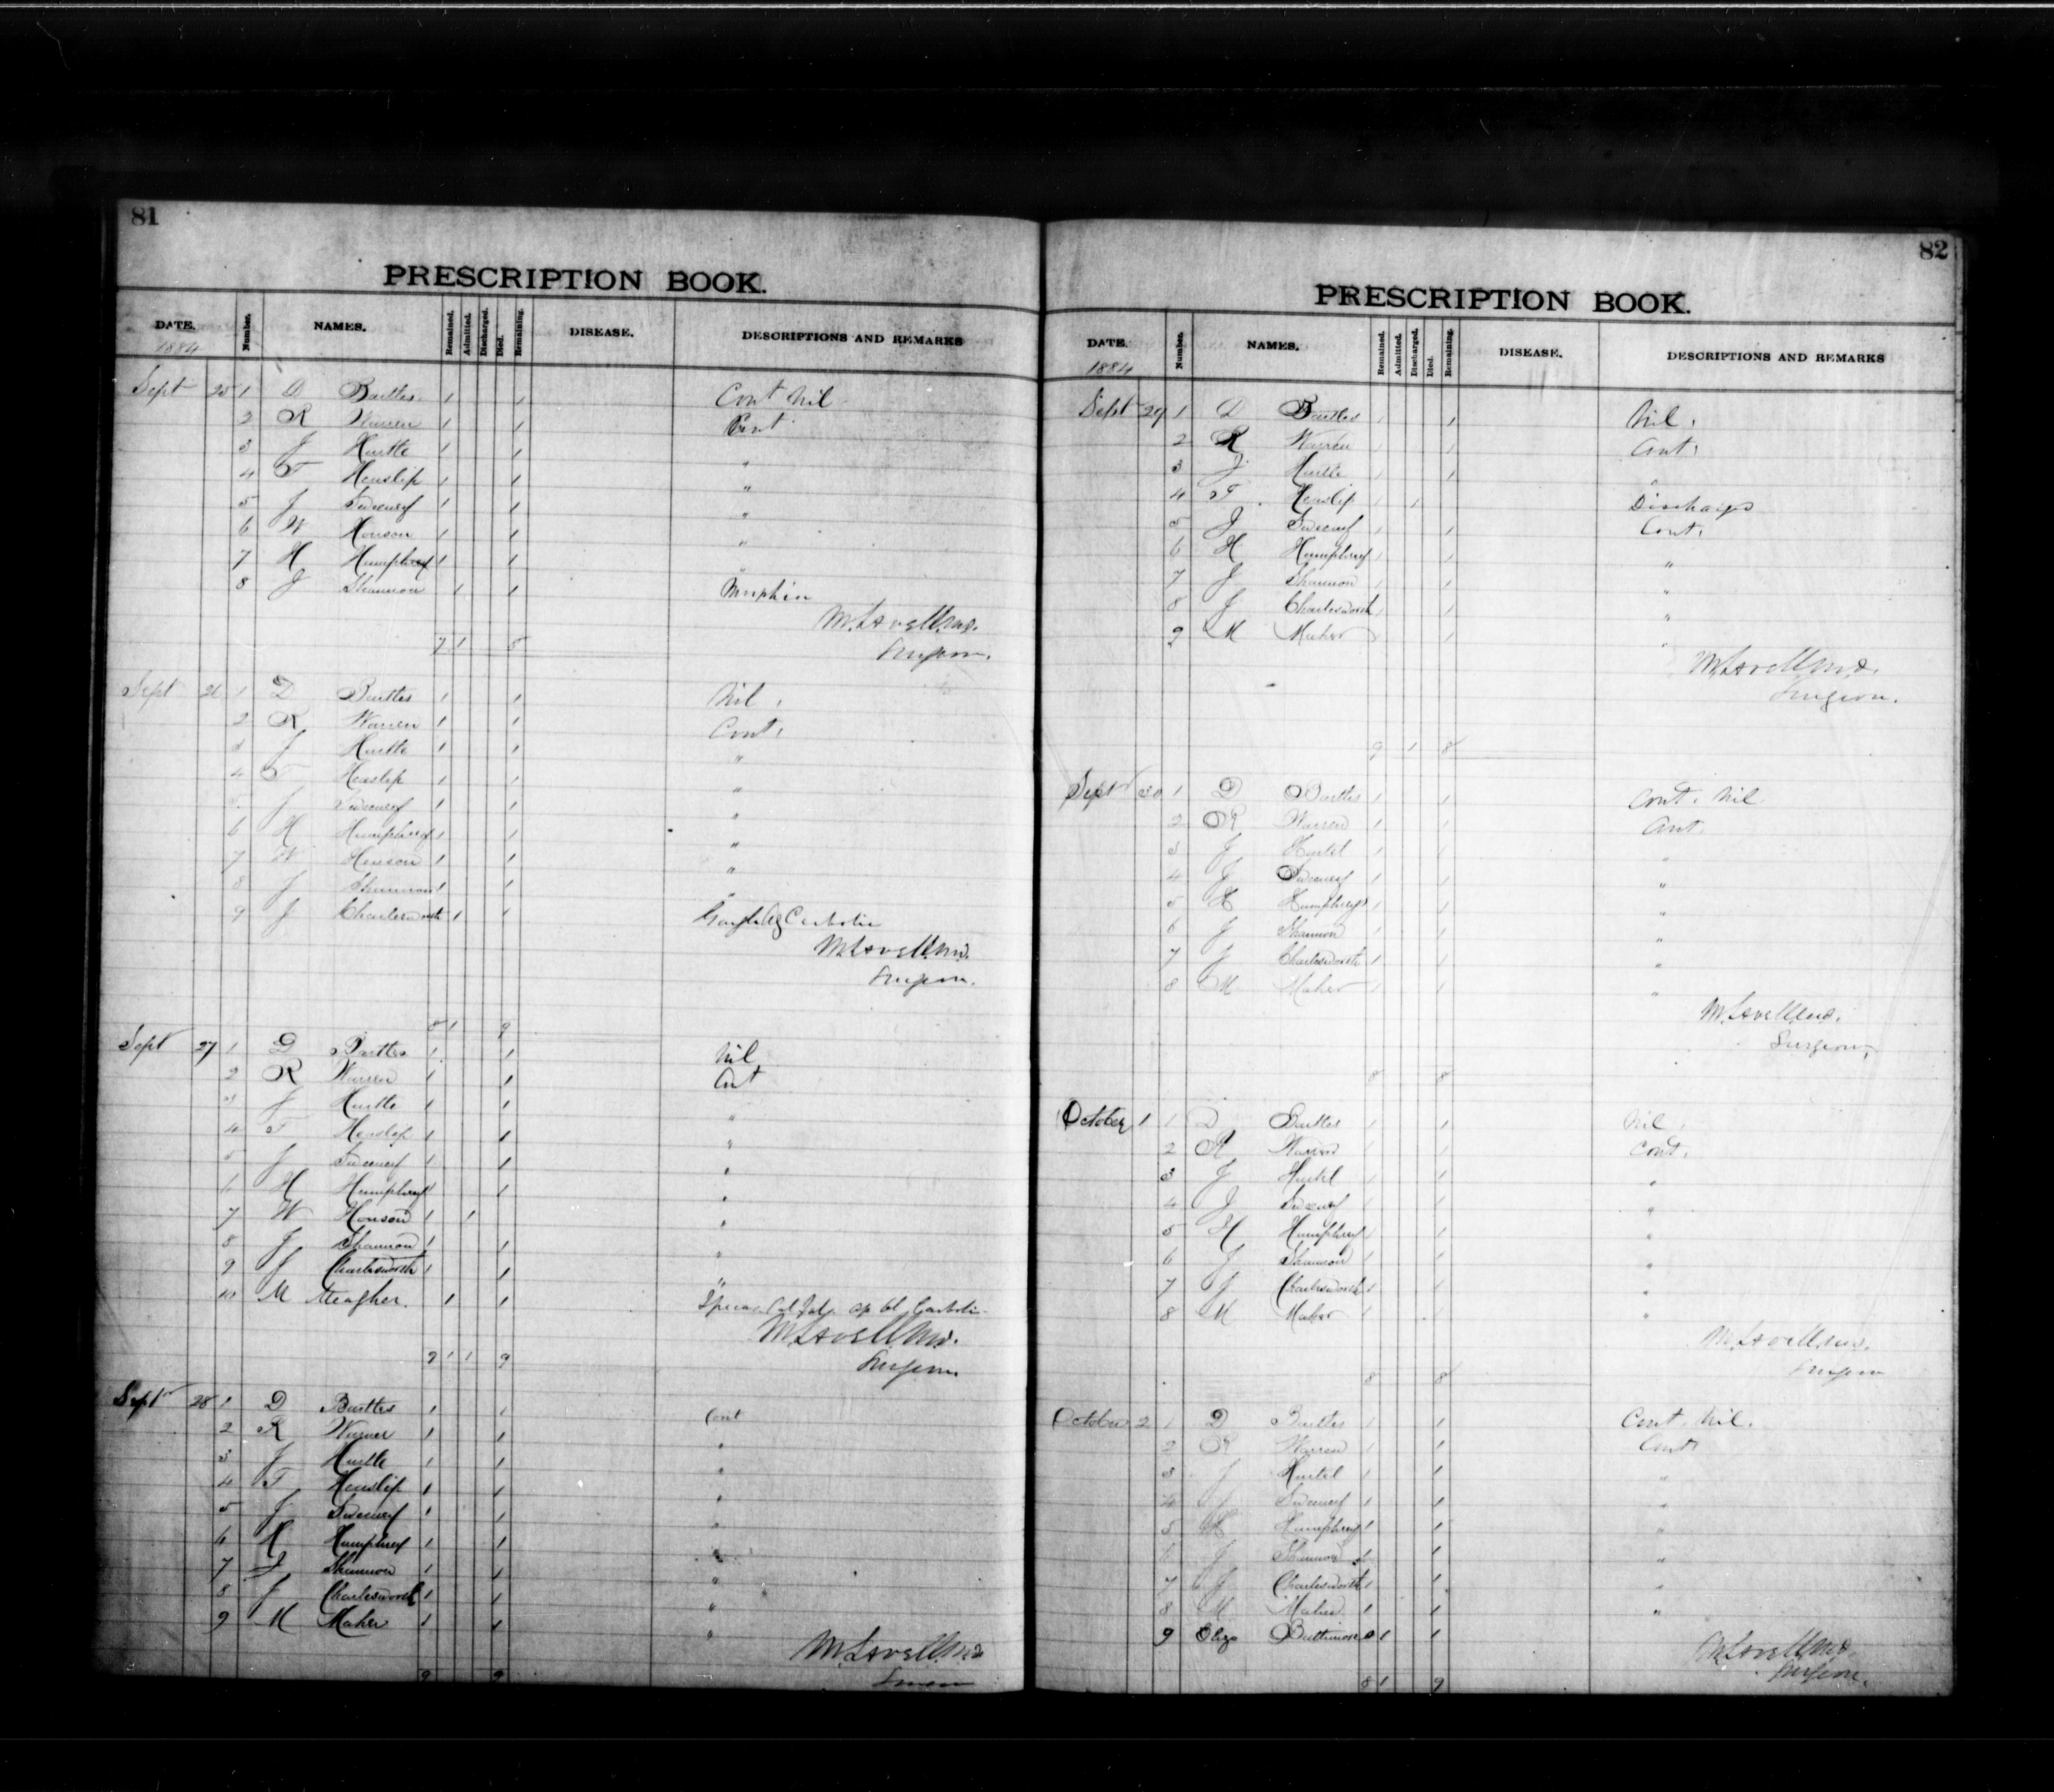 81
PRESCRIPTION BOOK.
DATE. Number. NAMES. Remained. Admitted. Discharged. Died. Remaining. DISEASE. DESCRIPTIONS AND REMARKS
1884
Sept 25 1 D Buttles 1 1 Cont Nil
2 R Warren 1 1 Cont
3 J Hurtle 1 1 "
4 T Henslip 1 1 "
5 J Sweeney 1 1 "
6 W Henson 1 1 "
7 H Humphrey 1 1 "
8 J Shannon 1 1 Morphia
M. Lavell M.D.
7 1 8 Surgeon.
Sept 26 1 D Buttles 1 1 Nil.
2 R Warren 1 1 Cont.
3 J Hurtle 1 1 "
4 T Henslip 1 1 "
5 J Sweeney 1 1 "
6 H Humphrey 1 1 "
7 W Henson 1 1 "
8 J Shannon 1 1 "
9 J Charlesworth 1 1 Gargle Carbolic
M. Lavell M.D.
Surgeon.
8 1 9
Sept 27 1 D Buttles 1 1 Nil
2 R Warren 1 1 Cont
3 J Hurtle 1 1 "
4 T Henslip 1 1 "
5 J Sweeney 1 1 "
6 H Humphrey 1 1 "
7 W Henson 1 1 "
8 J Shannon 1 1 "
9 J Charlesworth 1 1 "
10 M Meagher. 1 1
M. Lavell M.D.
9 1 1 9 Surgeon.
Sept 28 1 D Buttles 1 1 Cont
2 R Warner 1 1 "
3 J Hurtle 1 1 "
4 T Henslip 1 1 "
5 J Sweeney 1 1 "
6 H Humphrey 1 1 "
7 J Shannon 1 1 "
8 J Charlesworth 1 1 "
9 M Maher 1 1 "
M. Lavell M.D.
9 9 Surgeon
82
PRESCRIPTION BOOK.
DATE. Number. NAMES. Remained. Admitted. Discharged. Died. Remaining. DISEASE. DESCRIPTIONS AND REMARKS
1884
Sept 29 1 D Buttles 1 1 Nil.
2 R Warren 1 1 Cont.
3 J Hurtle 1 1 "
4 T Henslip 1 1 Discharge
5 J Sweeney 1 1 Cont.
6 H Humphrey 1 1 "
7 J Shannon 1 1 "
8 J Charlesworth 1 1 "
9 M Maher 1 1 "
M. Lavell M.D.
Surgeon.
9 1 8
Sept 30 1 D Buttles 1 1 Cont. Nil
2 R Warren 1 1 Cont
3 J Hurtel 1 1 "
4 J Sweeney 1 1 "
5 H Humphreys 1 1 "
6 J Shannon 1 1 "
7 J Charlesworth 1 1 "
8 M Maher 1 1 "
M. Lavell M.D.
Surgeon,
8 8
October 1 1 D Buttles 1 1 Nil.
2 R Warren 1 1 Cont.
3 J Hurtel 1 1 "
4 J Sweeney 1 1 "
5 H Humphrey 1 1 "
6 J Shannon 1 1 "
7 J Charlesworth 1 1 "
8 M Maher 1 "
M. Lavell M.D.
8 8 Surgeon
October 2 1 D Buttles 1 1 Cont. Nil.
2 R Warren 1 1 Cont
3 J Hurtel 1 1 "
4 J Sweeney 1 1 "
5 H Humphrey 1 1 "
6 J Shannon 1 1 "
7 J Charlesworth 1 1 "
8 M Maher 1 1 "
9 Eliza Buttimore 1 1
M. Lavell M.D.
Surgeon.
8 1 9